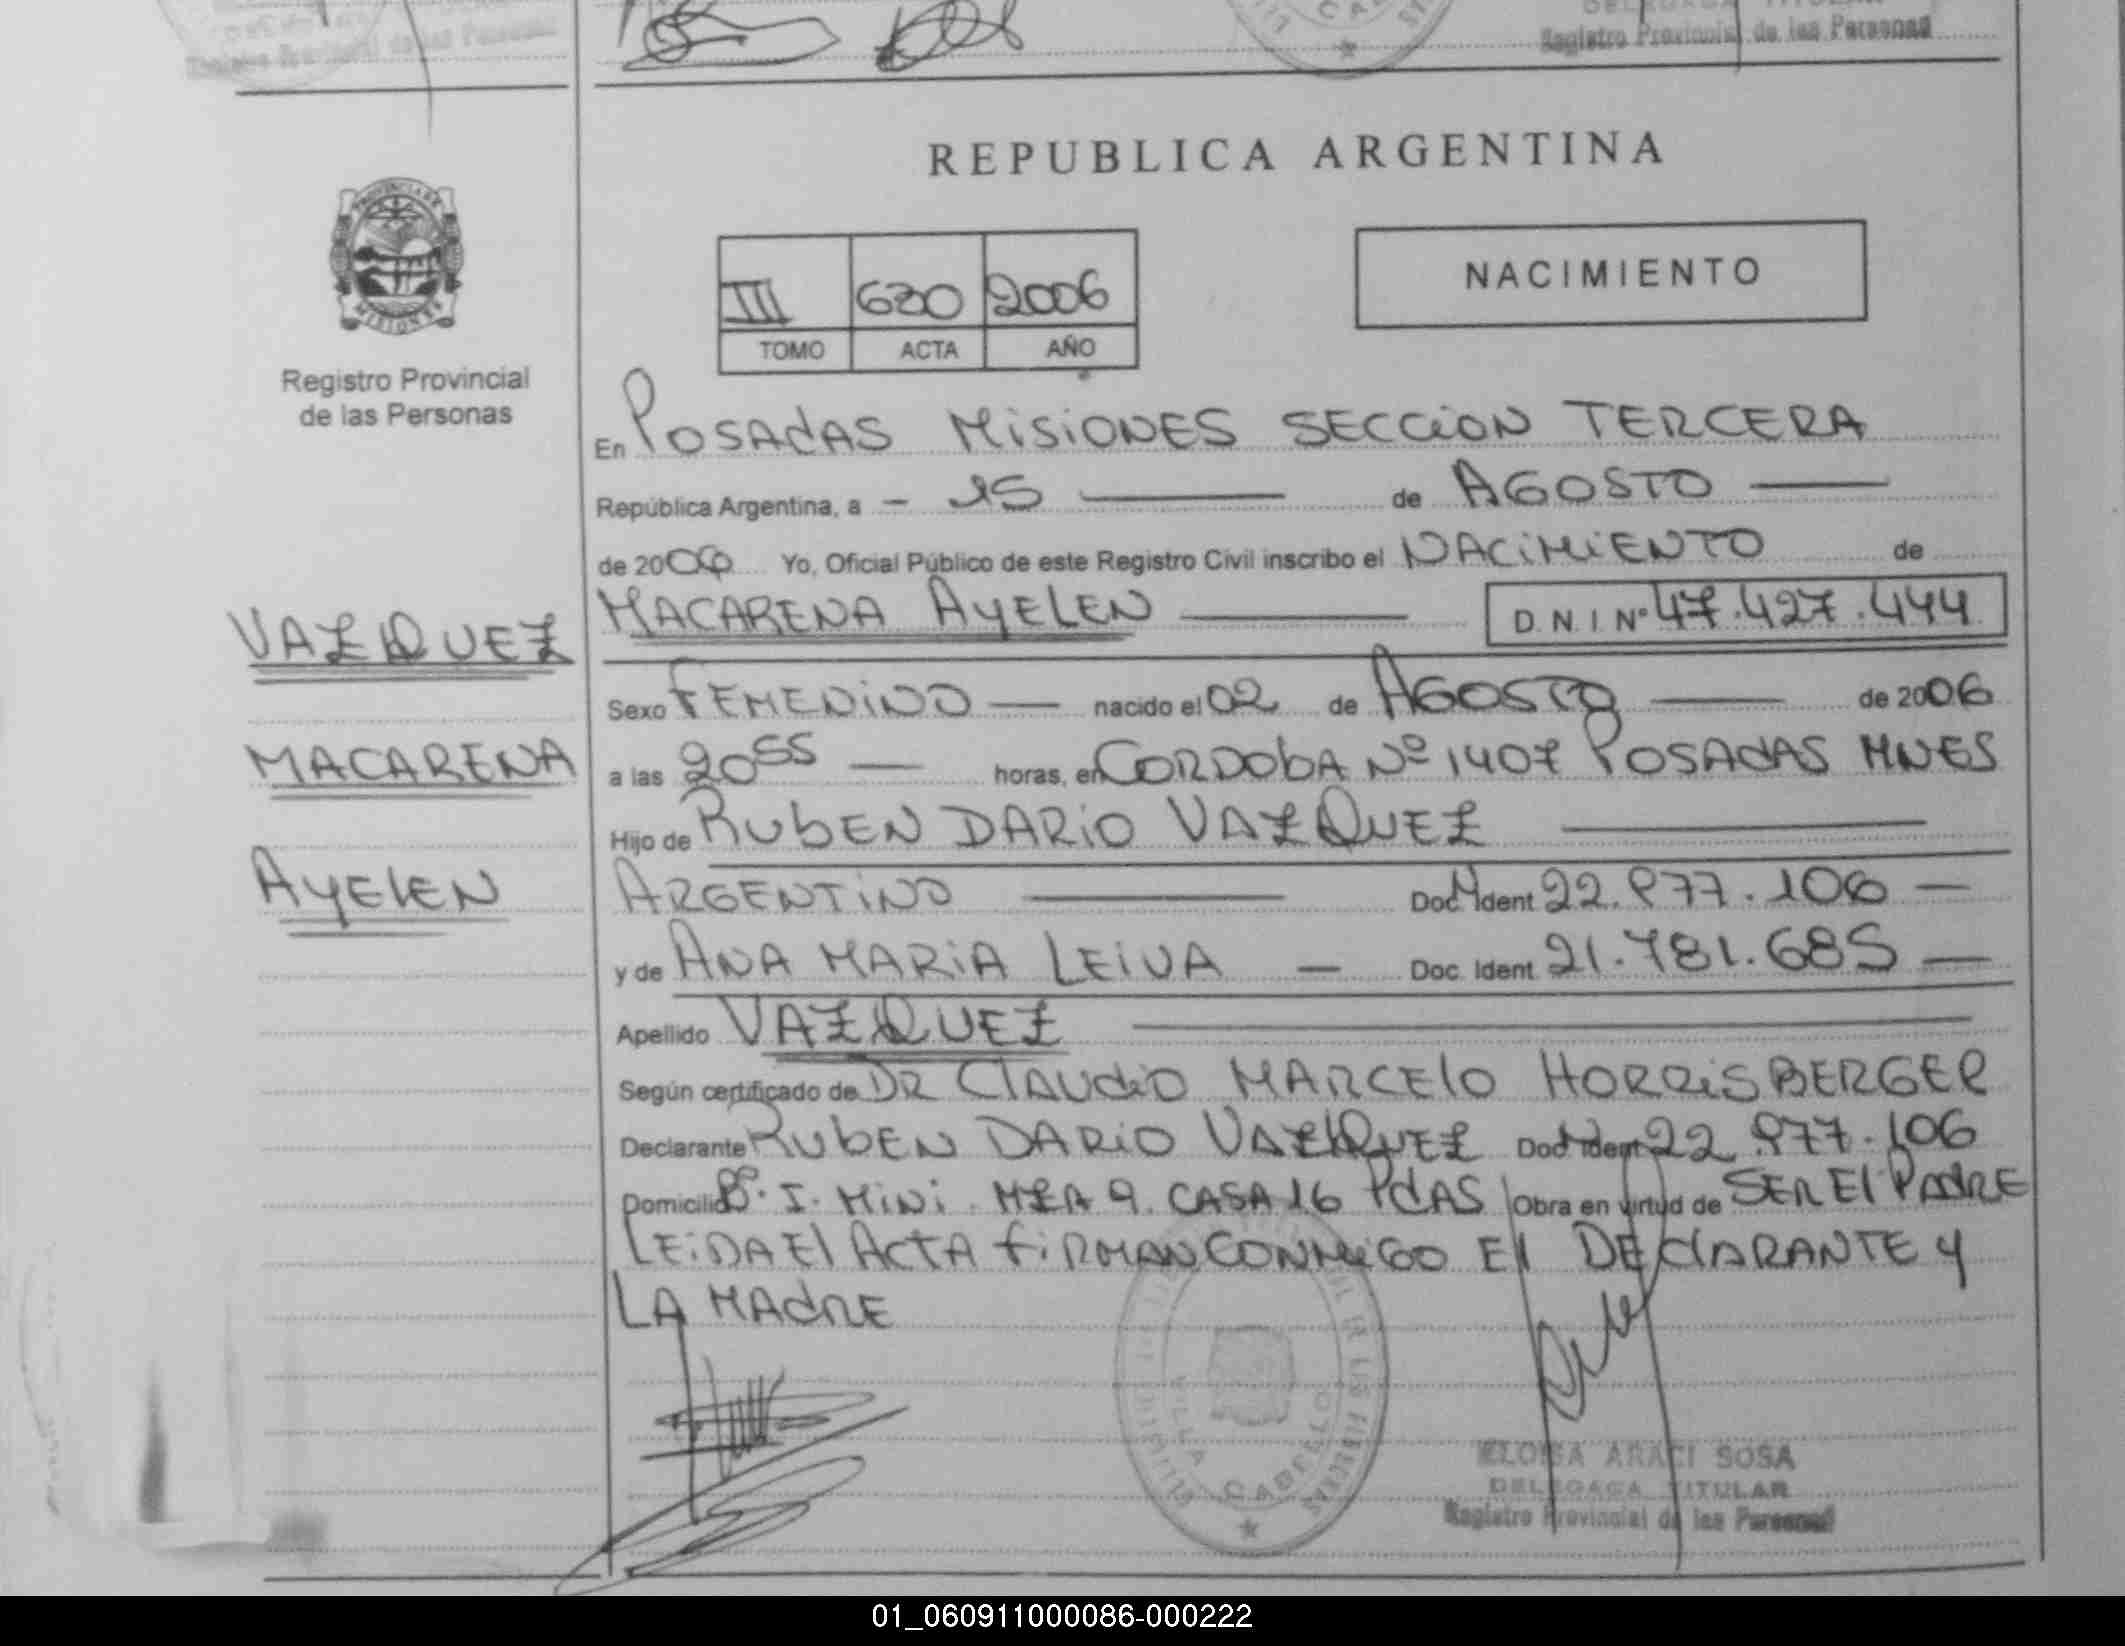 Registro Provincial de las Personas
REPUBLICA ARGENTINA
III 620 2006
TOMO ACTA AÑO
NACIMIENTO
Registro Provincial
de las Personas
En POSADAS MISIONES SECCION TERCERA
República Argentina, a - 15 de AGOSTO
de 2006 Yo, Oficial Público de este Registro Civil inscribo el NACIMIENTO de
MACARENA AYELEN D.N.I. Nº 47.427.444
VAZQUEZ
MACARENA
AYELEN
Sexo FEMENINO nacido el 02 de AGOSTO de 2006
a las 20 55 horas, en CORDOBA Nº 1407 POSADAS MNES
Hijo de RUBEN DARIO VAZQUEZ
ARGENTINO Doc. Ident 22.877.106
y de ANA MARIA LEIVA Doc. Ident 21.781.685
Apellido VAZQUEZ
Según certificado de DR CLAUDIO MARCELO HORRISBERGER
Declarante RUBEN DARIO VAZQUEZ Doc. Ident 22.877.106
Domicilio Bº. I. MINI. MZA 9. CASA 16 PDAS Obra en virtud de SER EL PADRE
LEIDA EL ACTA FIRMAN CONMIGO EL DECLARANTE Y
LA MADRE
VILLA CABELLO
ELOISA ARACI SOSA
DELEGADA TITULAR
Registro Provincial de las Personas
01_060911000086-000222